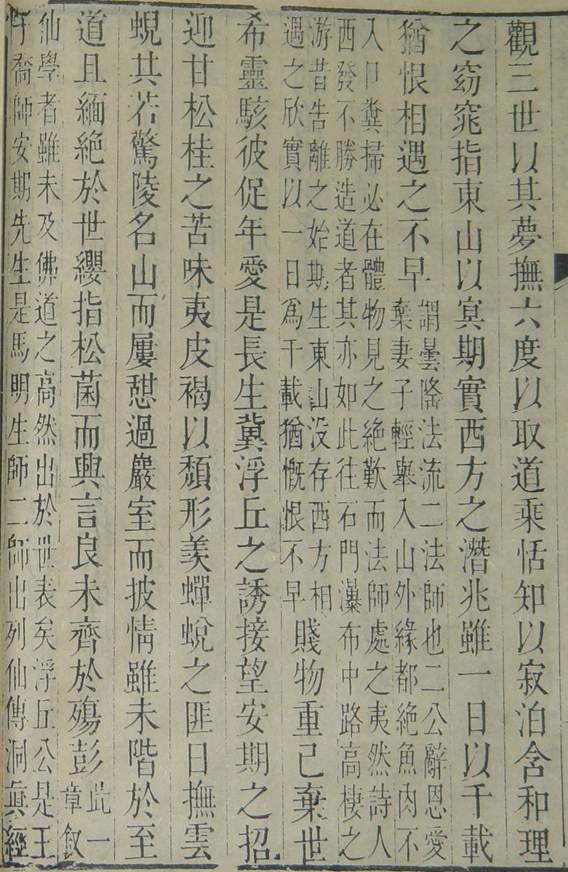 觀三世以其夢撫六度以取道乘恬知以寂泊含和理
之窈窕指東山以冥期實西方之潛兆雖一日以千載
猶恨相遇之不早謂曇隆法流二法師也二公辭恩愛
棄妻子輕舉入山外緣都絶魚肉不
入口糞掃必在體物見之絶歎而法師處之夷然詩人
西發不勝造道者其亦如此往石門瀑布中路高棲之
游昔告離之始期生東山没存西方相
遇之欣實以一日爲千載猶慨恨不早賤物重己棄世
希靈駭彼促年愛是長生冀浮丘之誘接望安期之招
迎甘松桂之苦味夷皮褐以頽形羨蟬蛻之匪日撫雲
蜺其若驚陵名山而屢憇過巖室而披情雖未階於至
道且緬絶於世纓指松菌而興言良未齊於殤彭此一
章敘
仙學者雖未及佛道之高然出於世表矣浮丘公是王
子喬師安期先生是馬明生師二師出列仙傳洞眞經